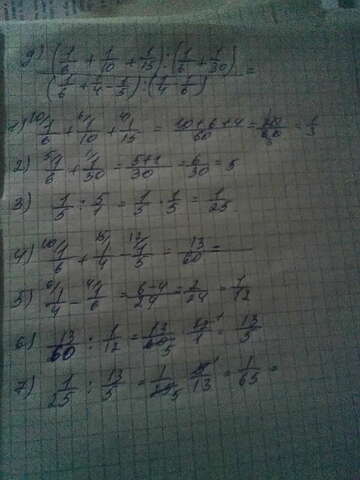 g) (1/6 + 1/10 + 1/15) : (1/6 + 1/30)
(1/6 + 1/4 - 1/5) : (1/4 - 1/6) =
1) 10/ 1/6 + 6/ 1/10 + 4/ 1/15 = 10+6+4/60 = 20/60 = 1/3
2) 5/ 1/6 + 1/ 1/30 = 5+1/30 = 6/30 = 5
3) 1/5 : 5/1 = 1/5 · 1/5 = 1/25
4) 10/ 1/6 + 15/ 1/4 - 12/ 1/5 = 13/60 =
5) 6/ 1/4 - 4/ 1/6 = 6-4/24 = 2/24 = 1/12
6) 13/60 : 1/12 = 13/60 5 · 12/1 1 = 13/5
7) 1/25 : 13/5 = 1/25 5 · 5/13 1 = 1/65 =